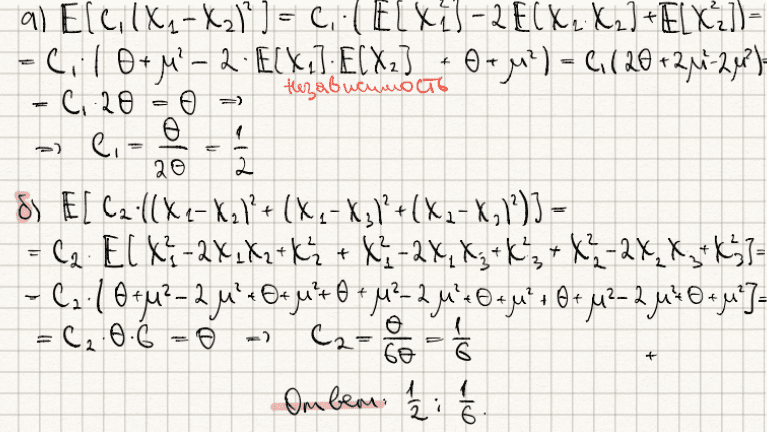 а) E[C₁(X₁-X₂)²] = C₁·(E[X₁²]-2E[X₁·X₂]+E[X₂²])=
= C₁·(θ+μ²-2·E[X₁]·E[X₂] + θ+μ²) = C₁(2θ+2μ²-2μ²)=
независимость
= C₁·2θ = θ ⇒
⇒ C₁ = θ/2θ = 1/2
б) E[C₂·((X₁-X₂)²+(X₁-X₃)²+(X₂-X₃)²)] =
= C₂·E[X₁²-2X₁X₂+X₂² + X₁²-2X₁X₃+X₃² + X₂²-2X₂X₃+X₃²]=
= C₂·(θ+μ²-2μ²+θ+μ²+θ+μ²-2μ²+θ+μ²+θ+μ²-2μ²+θ+μ²]=
= C₂·θ·6 = θ ⇒ C₂ = θ/6θ = 1/6
+
Ответ: 1/2; 1/6.